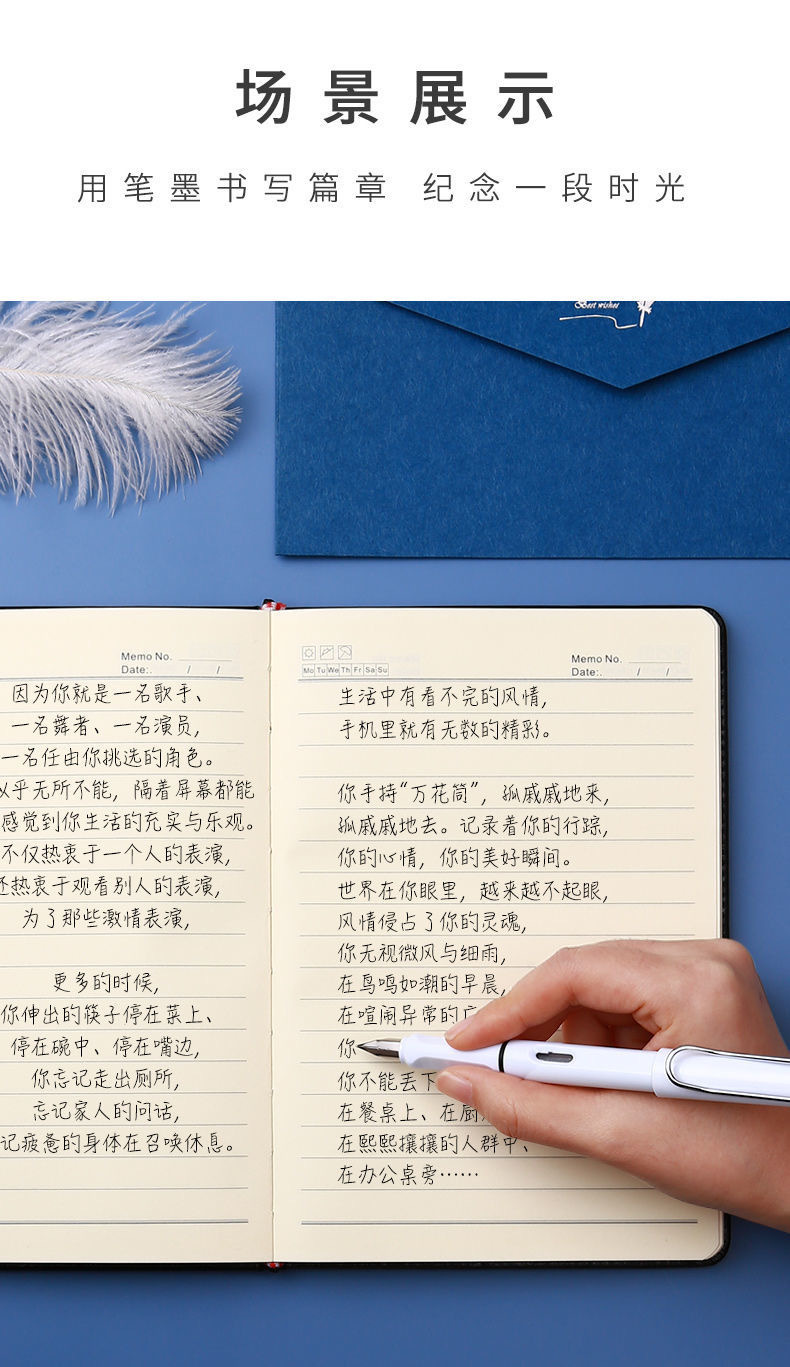 场景展示
用笔墨书写篇章 纪念一段时光
Best wishes
Memo No.
Date:. / /
因为你就是一名歌手、
一名舞者、一名演员,
一名任由你挑选的角色。
乎无所不能, 隔着屏幕都能
感觉到你生活的充实与乐观。
不仅热衷于一个人的表演,
还热衷于观看别人的表演,
为了那些激情表演,
更多的时候,
你伸出的筷子停在菜上、
停在碗中、停在嘴边,
你忘记走出厕所,
忘记家人的问话,
记疲惫的身体在召唤休息。
Mo Tu We Th Fr Sa Su
Memo No.
Date:. / /
生活中有看不完的风情,
手机里就有无数的精彩。
你手持“万花筒”, 孤戚戚地来,
孤戚戚地去。记录着你的行踪,
你的心情, 你的美好瞬间。
世界在你眼里, 越来越不起眼,
风情侵占了你的灵魂,
你无视微风与细雨,
在鸟鸣如潮的早晨,
在喧闹异常的
你
你不能丢下
在餐桌上、在厨
在熙熙攘攘的人群中、
在办公桌旁……